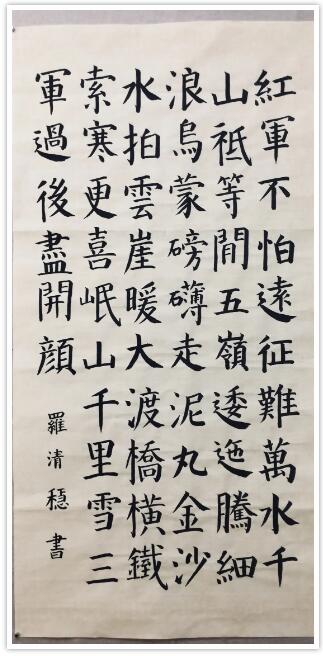 紅軍不怕遠征難萬水千
山祗等閒五嶺逶迤騰細
浪烏蒙磅礴走泥丸金沙
水拍雲崖暖大渡橋橫鐵
索寒更喜岷山千里雪三
軍過後盡開顔
羅清穏書